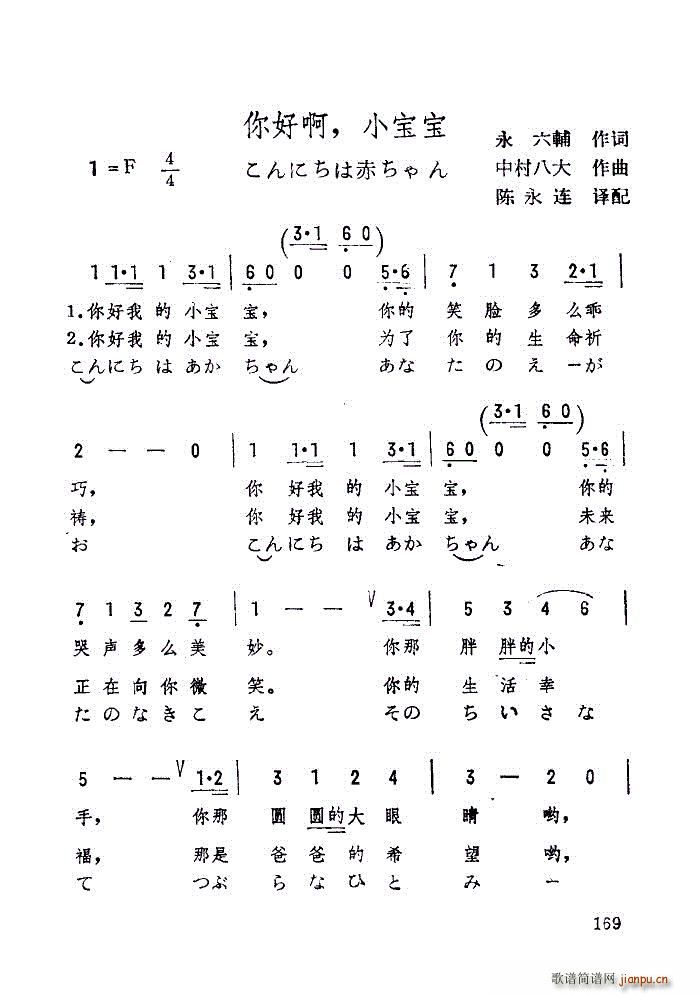 你好啊，小宝宝
永 六輔 作词
1=F 4/4 こんにちは赤ちゃん 中村八大 作曲
陈永连 译配
(3·1 6 0)
1 1·1 1 3·1 | 6 0 0 0 5·6 | 7 1 3 2·1 |
1.你好我 的 小宝 宝， 你的 笑 脸 多 么乖
2.你好我 的 小宝 宝， 为了 你 的 生 命祈
こんにち は あか ちゃん あな た の え ーが
(3·1 6 0)
2 — — 0 | 1 1·1 1 3·1 | 6 0 0 0 5·6 |
巧， 你 好我 的 小宝 宝， 你的
祷， 你 好我 的 小宝 宝， 未来
お こんにち は あか ちゃん あな
7 1 3 2 7 | 1 — — V 3·4 | 5 3 4 6 |
哭 声 多 么 美 妙。 你那 胖 胖的 小
正 在 向 你 微 笑。 你的 生 活 幸
た の な き こ え その ち い さ な
5 — — V 1·2 | 3 1 2 4 | 3 — 2 0 |
手， 你那 圆 圆的 大 眼 睛 哟，
福， 那是 爸 爸 的 希 望 哟，
て つぶ ら な ひ と み ー
169
歌谱简谱网
jianpu.cn